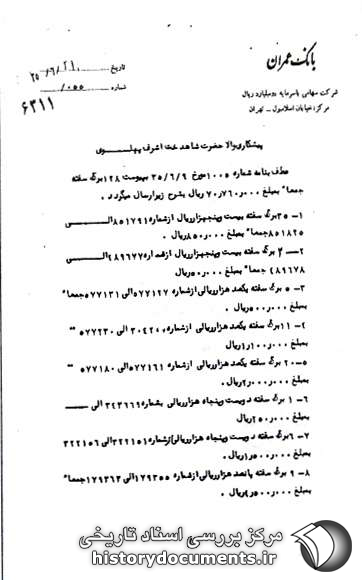 بانک عمران
شرکت سهامی باسرمایه دومیلیارد ریال
مرکز: خیابان اسلامبول - تهران
تاریخ ۲۵/۶/۲۱
شماره ۰۵۵/
۶۳۱۱
پیشکاری والا حضرت شاهدخت اشرف پهلوی
عطف بنامه شماره ۱۰۰۵ مورخ ۳۵/۶/۹ بپیوست ۱۲۸ برگ سفته
جمعا" بمبلغ ۷۰٫۷۶۰٫۰۰۰ ریال بشرح زیر ارسال میگردد.
۱- ۳۵ برگ سفته بیست وپنجهزارریال ازشماره ۸۵۱۷۹۱ الی
۸۵۱۸۲۵ جمعا" بمبلغ ۸۵۰٫۰۰۰ ریال.
۲- ۲ برگ سفته بیست وپنجهزارریالی ازشماره ۴۸۹۶۷۷ الی
۴۸۹۶۷۸ جمعا" بمبلغ ۵۰٫۰۰۰ ریال
۳- ۵ برگ سفته یکصد هزارریالی ازشماره ۵۷۷۱۲۷ الی ۵۷۷۱۳۱ جمعا"
بمبلغ ۵۰۰٫۰۰۰ ریال.
۴- ۱۱ برگ سفته یکصد هزارریالی ازشماره ۳۰۴۲۰۰ الی ۵۷۷۲۳۰ "
بمبلغ ۱٫۱۰۰٫۰۰۰ ریال.
۵- ۲۰ برگ سفته یکصد هزارریالی ازشماره ۵۷۷۱۶۱ الی ۵۷۷۱۸۰ "
بمبلغ ۲٫۰۰۰٫۰۰۰ ریال.
۶- ۱ برگ سفته دویست وپنجاه هزارریالی بشماره ۳۴۳۶۶۹ الی
بمبلغ ۲۵۰٫۰۰۰ ریال.
۷- ۶ برگ سفته دویست وپنجاه هزارریالی ازشماره ۳۲۲۱۵۱ الی ۳۲۲۱۵۶
بمبلغ ۱٫۵۰۰٫۰۰۰ ریال.
۸- ۹ برگ سفته پانصد هزارریالی ازشماره ۱۷۹۳۵۵ الی ۱۷۹۳۶۳ جمعا"
بمبلغ ۴٫۵۰۰٫۰۰۰ ریال.
مرکز بررسی اسناد تاریخی
historydocuments.ir